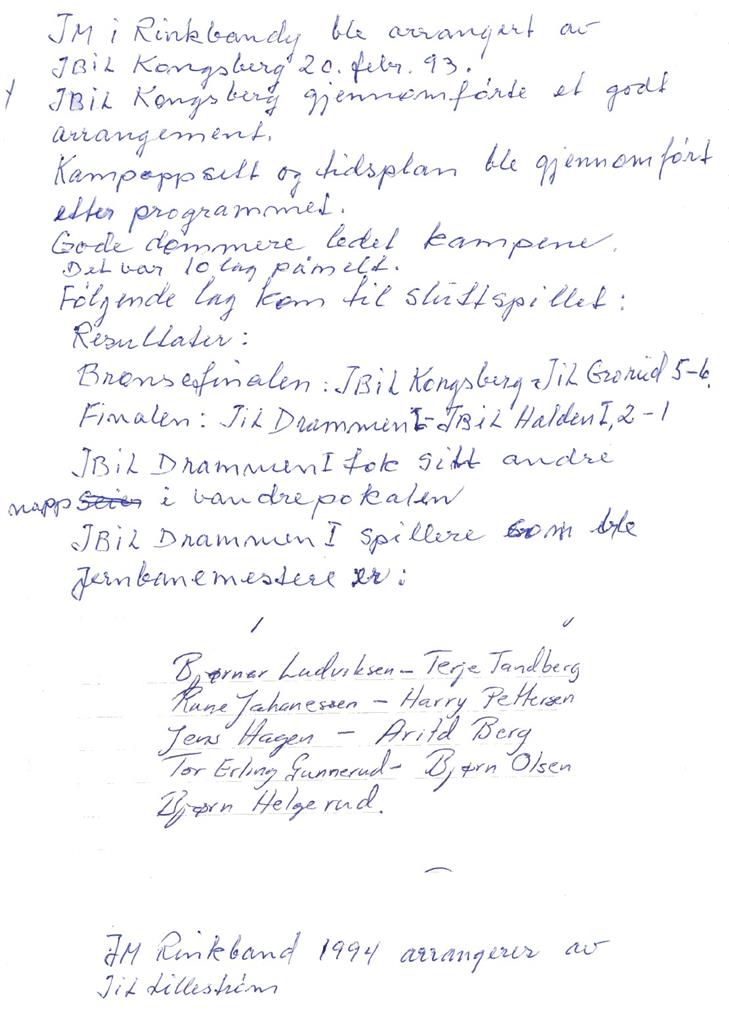 JM i Rinkbandy ble arrangert av
JBiL Kongsberg 20. febr. 93.
JBiL Kongsberg gjennomførte et godt
arrangement.
Kampoppsett og tidsplan ble gjennomført
etter programmet.
Gode dommere ledet kampene.
Det var 10 lag påmeldt.
Følgende lag kom til sluttspillet:
Resultater:
Bronsefinalen: JBiL Kongsberg - JiL Grorud 5-6.
Finalen: JiL Drammen I - JBiL Halden I, 2-1
JBiL Drammen I tok sitt andre
napp i vandrepokalen
JBiL Drammen I spillere som ble
Jernbanemestere er:
Bjørnar Ludviksen - Terje Tandberg
Rune Johanessen - Harry Pettersen
Jens Hagen - Arild Berg
Tor Erling Gunnerud - Bjørn Olsen
Bjørn Helgerud.
JM Rinkband 1994 arrangerer av
JiL Lillestrøm